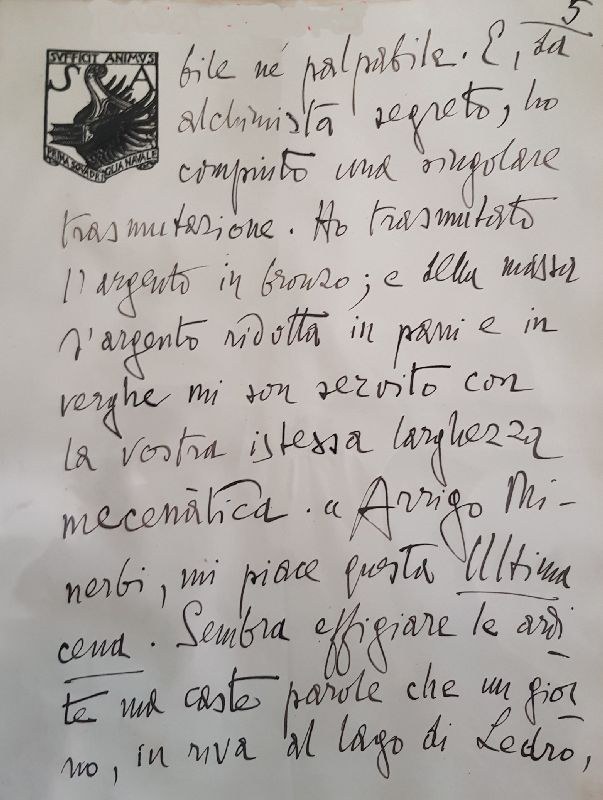 5
SVFFICIT ANIMVS
S A
PRIMA SQVADRIGLIA NAVALE
bile né palpabile. E, da
alchimista segreto, ho
compiuto una singolare
trasmutazione. Ho trasmutato
l'argento in bronzo; e della massa
d'argento ridotta in pani e in
verghe mi son servito con
la vostra istessa larghezza
mecenàtica. "Arrigo Mi-
nerbi, mi piace questa Ultima
cena. Sembra effigiare le ardi
te ma caste parole che un gior
no, in riva al lago di Ledro,